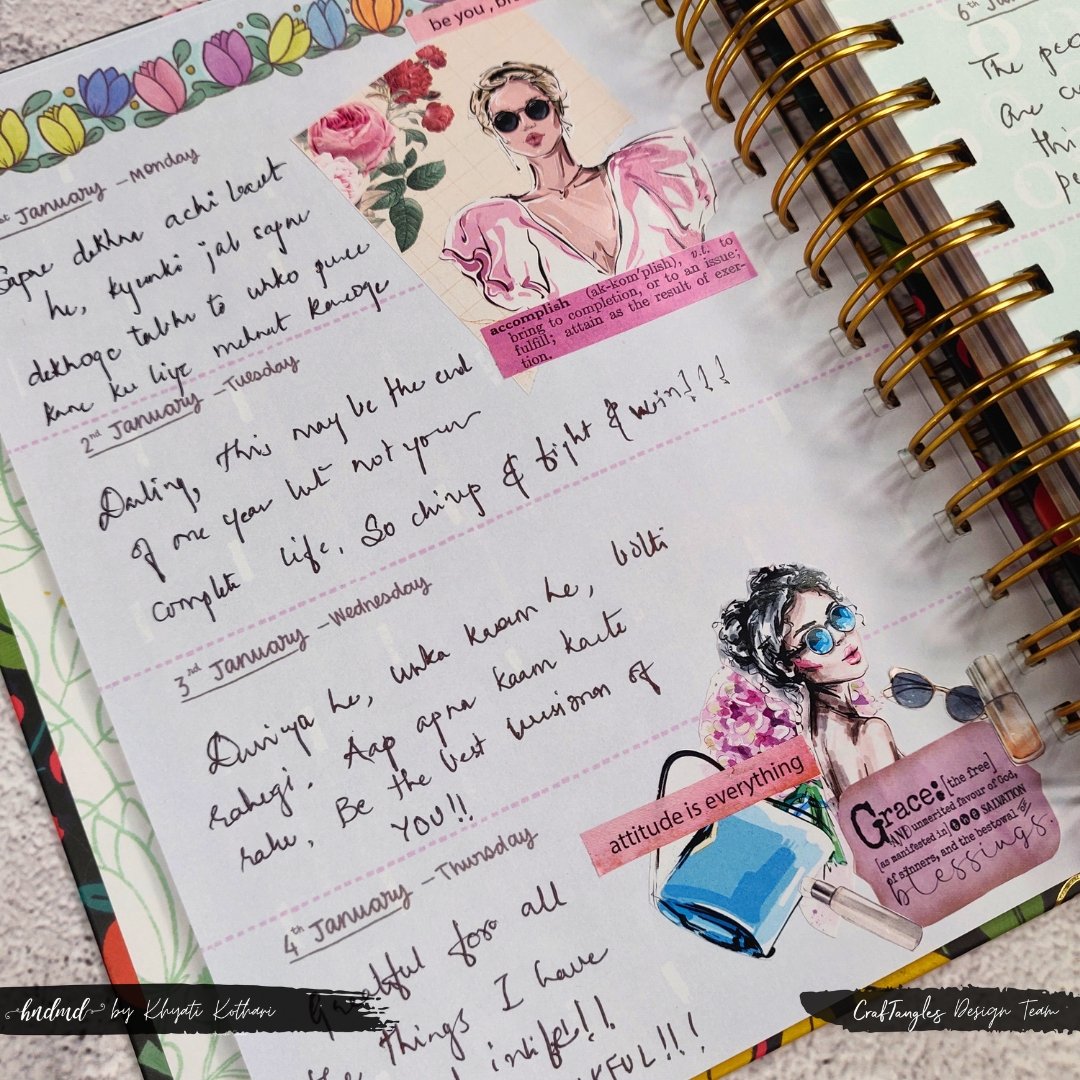 be you, br
1st January - Monday
Sapne dekhna achi baat
he, kyunki jab sapne
dekhoge tabhi to unko puree
karne ke liye mehnat karoge
accomplish (ak-kom'plish), v.t. to
bring to completion, or to an issue;
fulfill; attain as the result of exer-
tion.
2nd January - Tuesday
Darling, this may be the end
of one year but not your
complete life. So chirup & fight & win!!!
3rd January - Wednesday
Duniya he, unka kaam he, bolti
rahegi. Aap apna kaam karte
rahe, Be the best version of
YOU!!
attitude is everything
Grace: [the free]
AND unmerited favour of God,
[as manifested in] THE SALVATION
of sinners, and the bestowal of
blessings.
4th January - Thursday
Grateful for all
the things I have
in life!!!
KFUL!!!
6th Jan
The peo
Are cu
thi
pe
hndmd by Khyati Kothari
CrafTangles Design Team